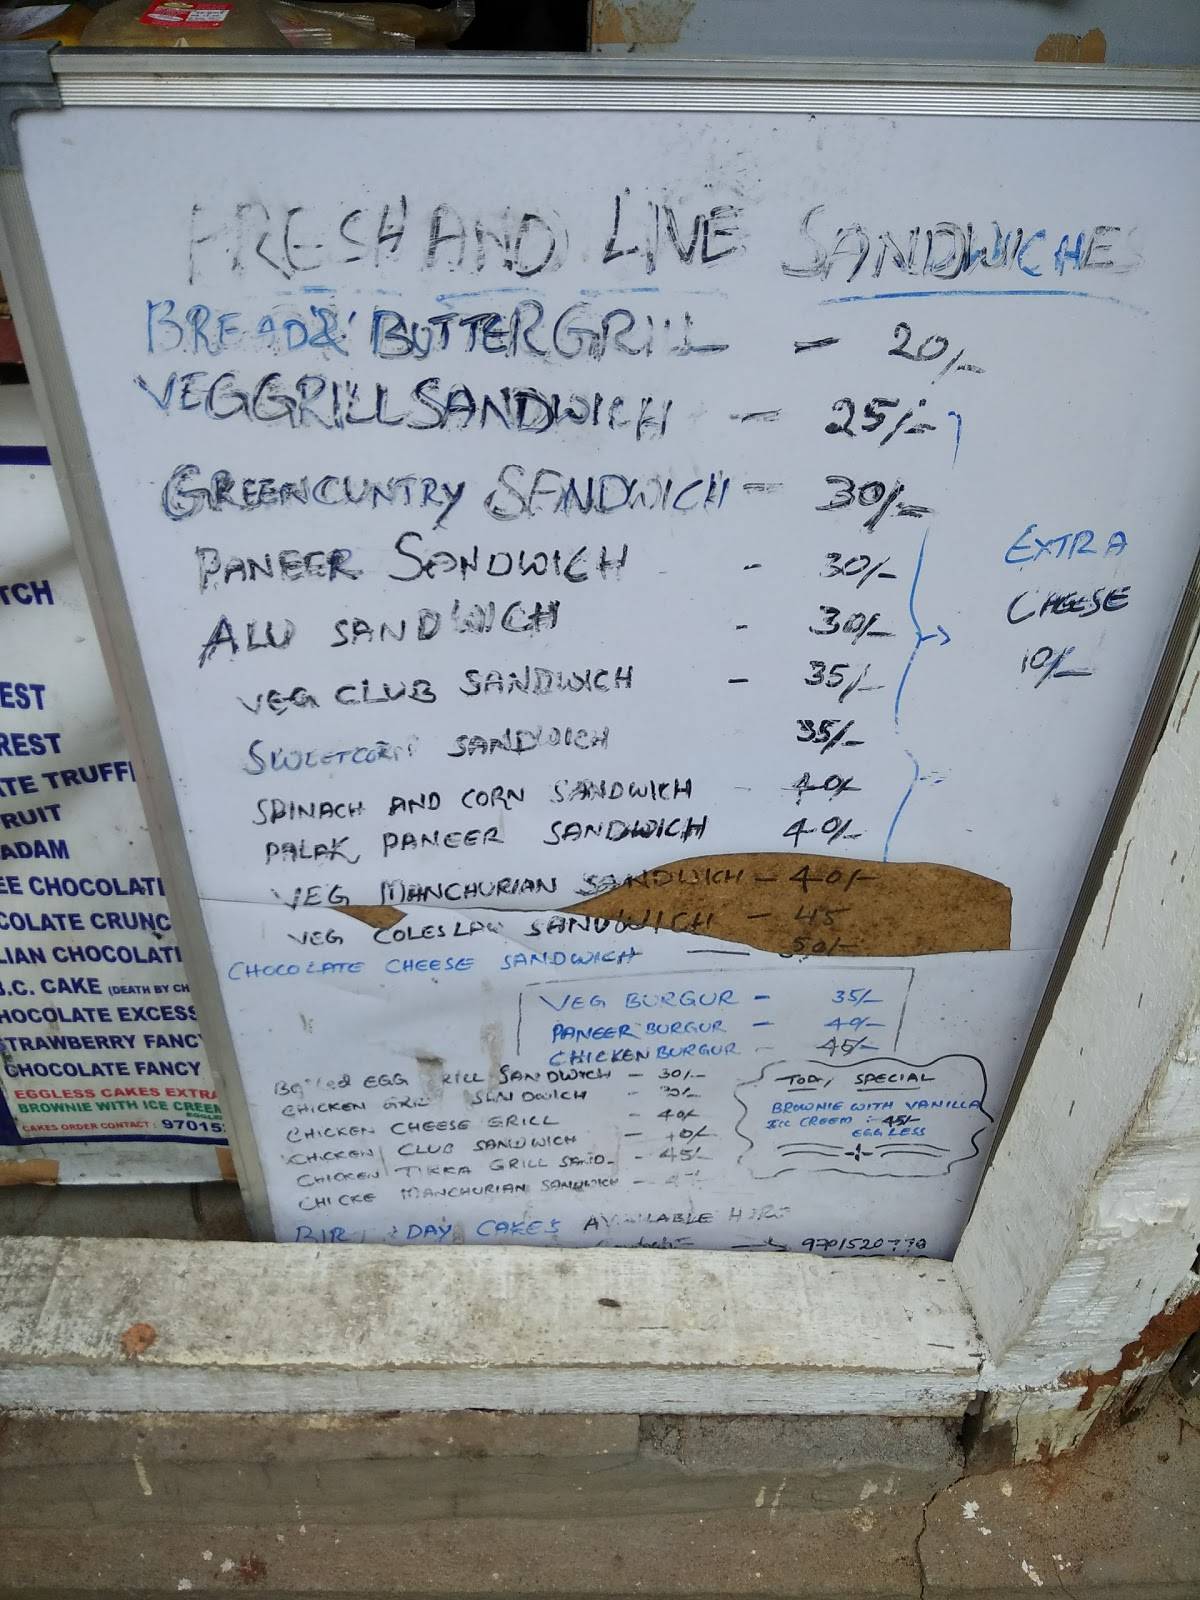 FRESH AND LIVE SANDWICHES
BREAD & BUTTER GRILL - 20/-
VEG GRILL SANDWICH - 25/-
GREENCUNTRY SANDWICH - 30/-
PANEER SANDWICH - 30/-
ALU SANDWICH - 30/-
VEG CLUB SANDWICH - 35/-
SWEETCORN SANDWICH 35/-
SPINACH AND CORN SANDWICH 40/-
PALAK PANEER SANDWICH 40/-
EXTRA
CHEESE
10/-
VEG MANCHURIAN SANDWICH - 40/-
VEG COLESLAW SANDWICH - 45
CHOCOLATE CHEESE SANDWICH — 50/-
VEG BURGUR - 35/-
PANEER BURGUR - 40/-
CHICKEN BURGUR - 45/-
Boiled EGG GRILL SANDWICH - 30/-
CHICKEN GRILL SANDWICH - 30/-
CHICKEN CHEESE GRILL - 40/-
CHICKEN CLUB SANDWICH - 40/-
CHICKEN TIKKA GRILL SAND- - 45/-
CHICKE MANCHURIAN SANDWICH -
TODAY SPECIAL
BROWNIE WITH VANILLA
ICE CREEM :- 45/-
EGG LESS
DAY CAKES AVAILABLE HERE
9701520770
TCH
EST
REST
TE TRUFF
RUIT
ADAM
EE CHOCOLATE
COLATE CRUNC
LIAN CHOCOLATE
.C. CAKE (DEATH BY CH
HOCOLATE EXCESS
TRAWBERRY FANCY
CHOCOLATE FANCY
EGGLESS CAKES EXTRA
BROWNIE WITH ICE CREEM
CAKES ORDER CONTACT : 97015